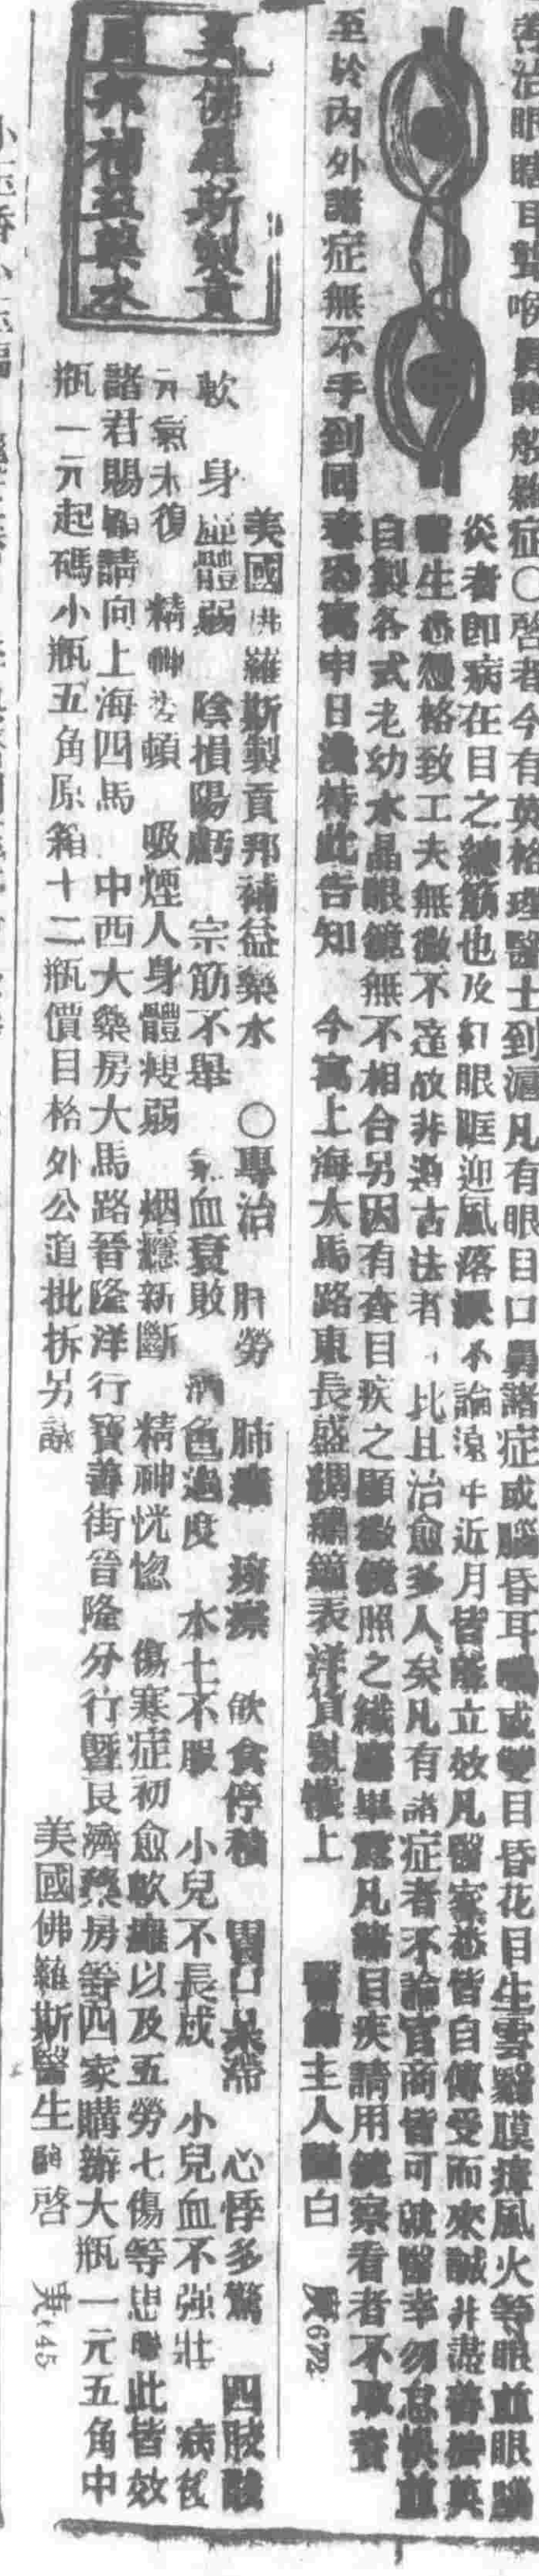 善治眼瞎耳聾喉鼻諸般雜症〇啓者今有英格理醫士到滬凡有眼目口鼻諸症或腦昏耳鳴或雙目昏花目生雲翳膜瘴風火等眼並眼腦
炎者即病在目之總筋也及紅眼眶迎風落淚不論遠年近月皆能立效凡醫家悉皆自傳受而來誠非盡善
醫生悉憑格致工夫無微不達故非遵古法者比且治愈多人矣凡有諸症者不論官商皆可就醫幸勿怠悞並
自製各式老幼水晶眼鏡無不相合另因有查目疾之顯微鏡照之纖塵畢露凡諸目疾請用鏡察看者不取資
至於內外諸症無不手到回春恐寓申日淺特此告知 今寓上海大馬路東長盛綢緞鐘表洋貨號樓上 主人白 672
美佛羅斯製貢
國邦補益藥水
美國佛羅斯製貢邦補益藥水 〇專治 肝勞 肺癆 痰瘵 飲食停積 胃口呆滯 心悸多驚 四肢酸
軟 身虛體弱 陰損陽虧 宗筋不舉 氣血衰敗 酒色過度 水土不服 小兒不長成 小兒血不强壯 病後
元氣未復 精神勞頓 吸煙人身體瘦弱 烟癮新斷 精神恍惚 傷寒症初愈軟癱以及五勞七傷等患 此皆效
諸君賜顧請向上海四馬 中西大藥房大馬路晉隆洋行寶善街晉隆分行曁良濟藥房等四家購辦大瓶一元五角中
瓶一元起碼小瓶五角原箱十二瓶價目格外公道批拆另議 美國佛羅斯醫生啓 45